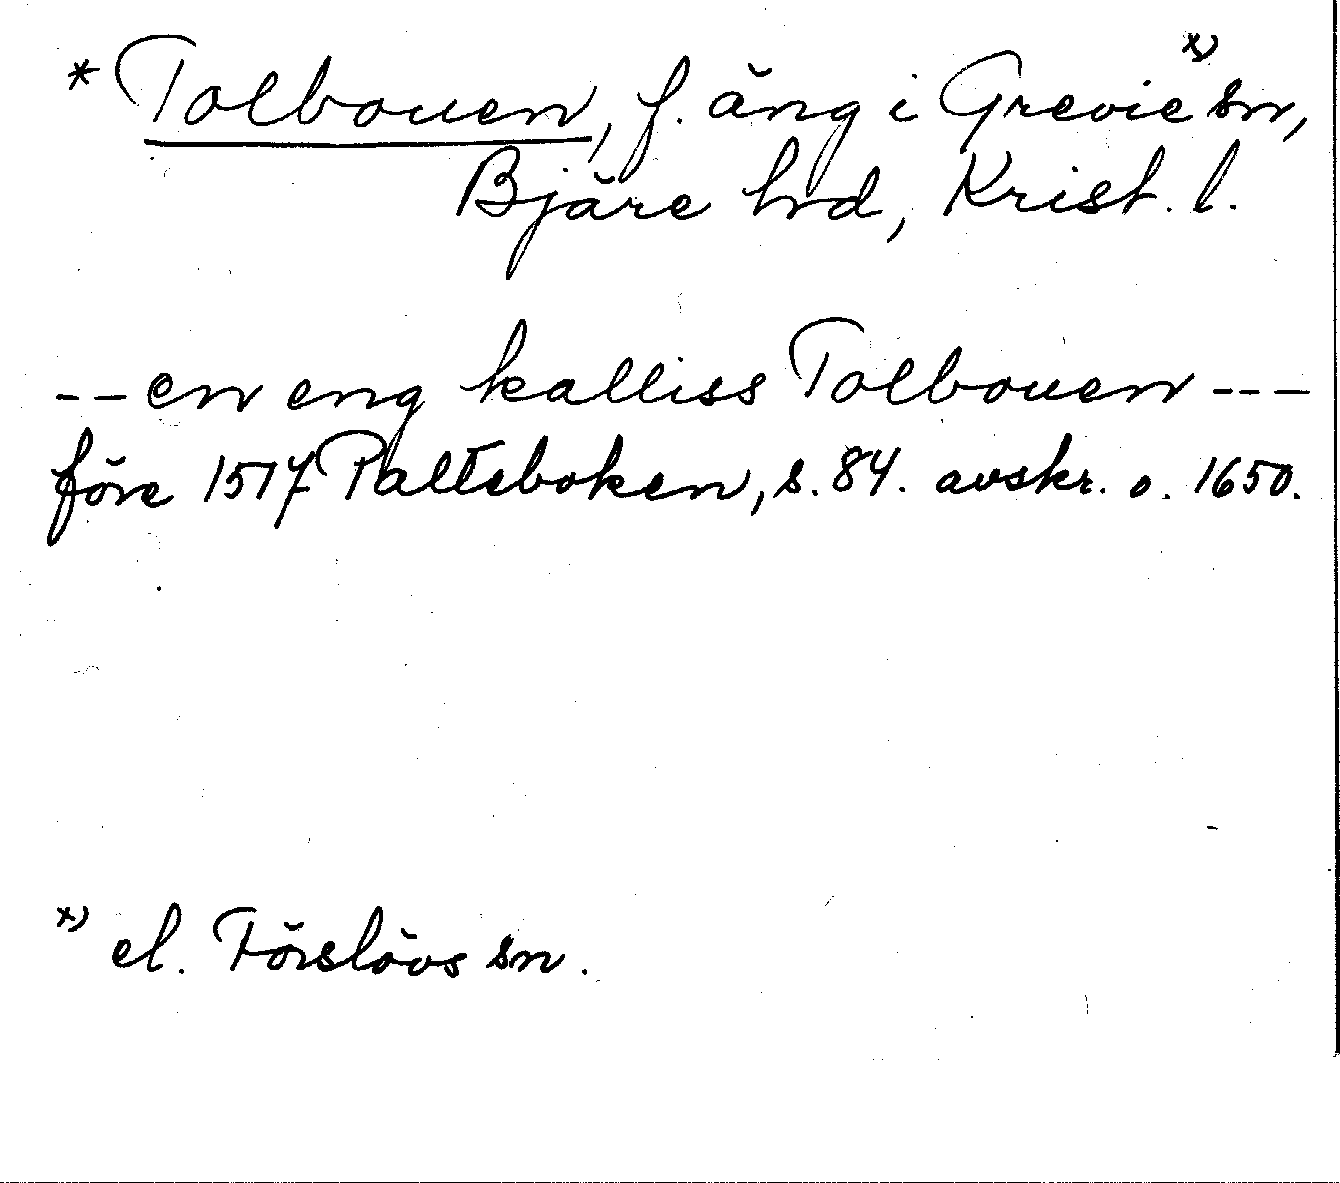 * Tolbouen, f. äng i Grevie x) sn,
Bjäre hrd, Krist. l.
-- en eng kalliss Tolbouen ---
före 1517 Palteboken, s. 84. avskr. o. 1650.
x) el. Förslövs sn.